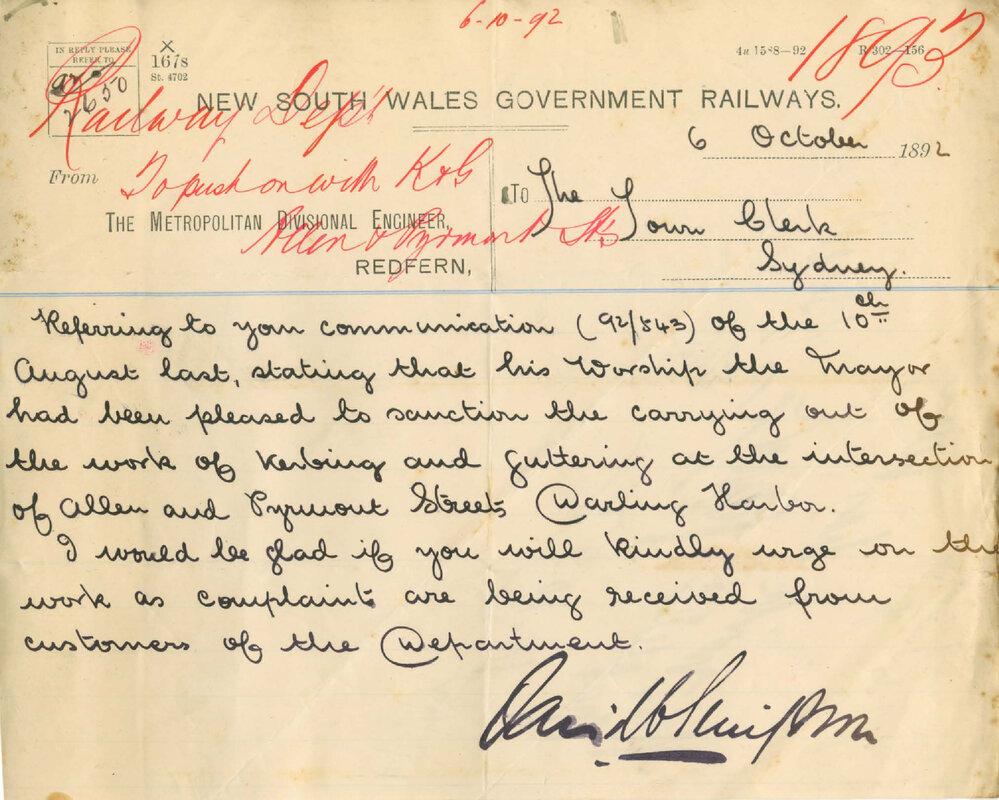 6-10-92
IN REPLY PLEASE
REFER TO
92
2650
X
1678
St. 4702
4u 1588—92
R 302—156
1893
Railway Dept
NEW SOUTH WALES GOVERNMENT RAILWAYS.
6 October 1892
From
To push on with K & G
Allen & Pyrmont Sts
THE METROPOLITAN DIVISIONAL ENGINEER,
REDFERN,
TO The Town Clerk
Sydney.
Referring to your communication (92/843) of the 10th
August last, stating that his Worship the Mayor
had been pleased to sanction the carrying out of
the work of kerbing and guttering at the intersection
of Allen and Pyrmont Streets Darling Harbor.
I would be glad if you will kindly urge on the
work as complaints are being received from
customers of the Department.